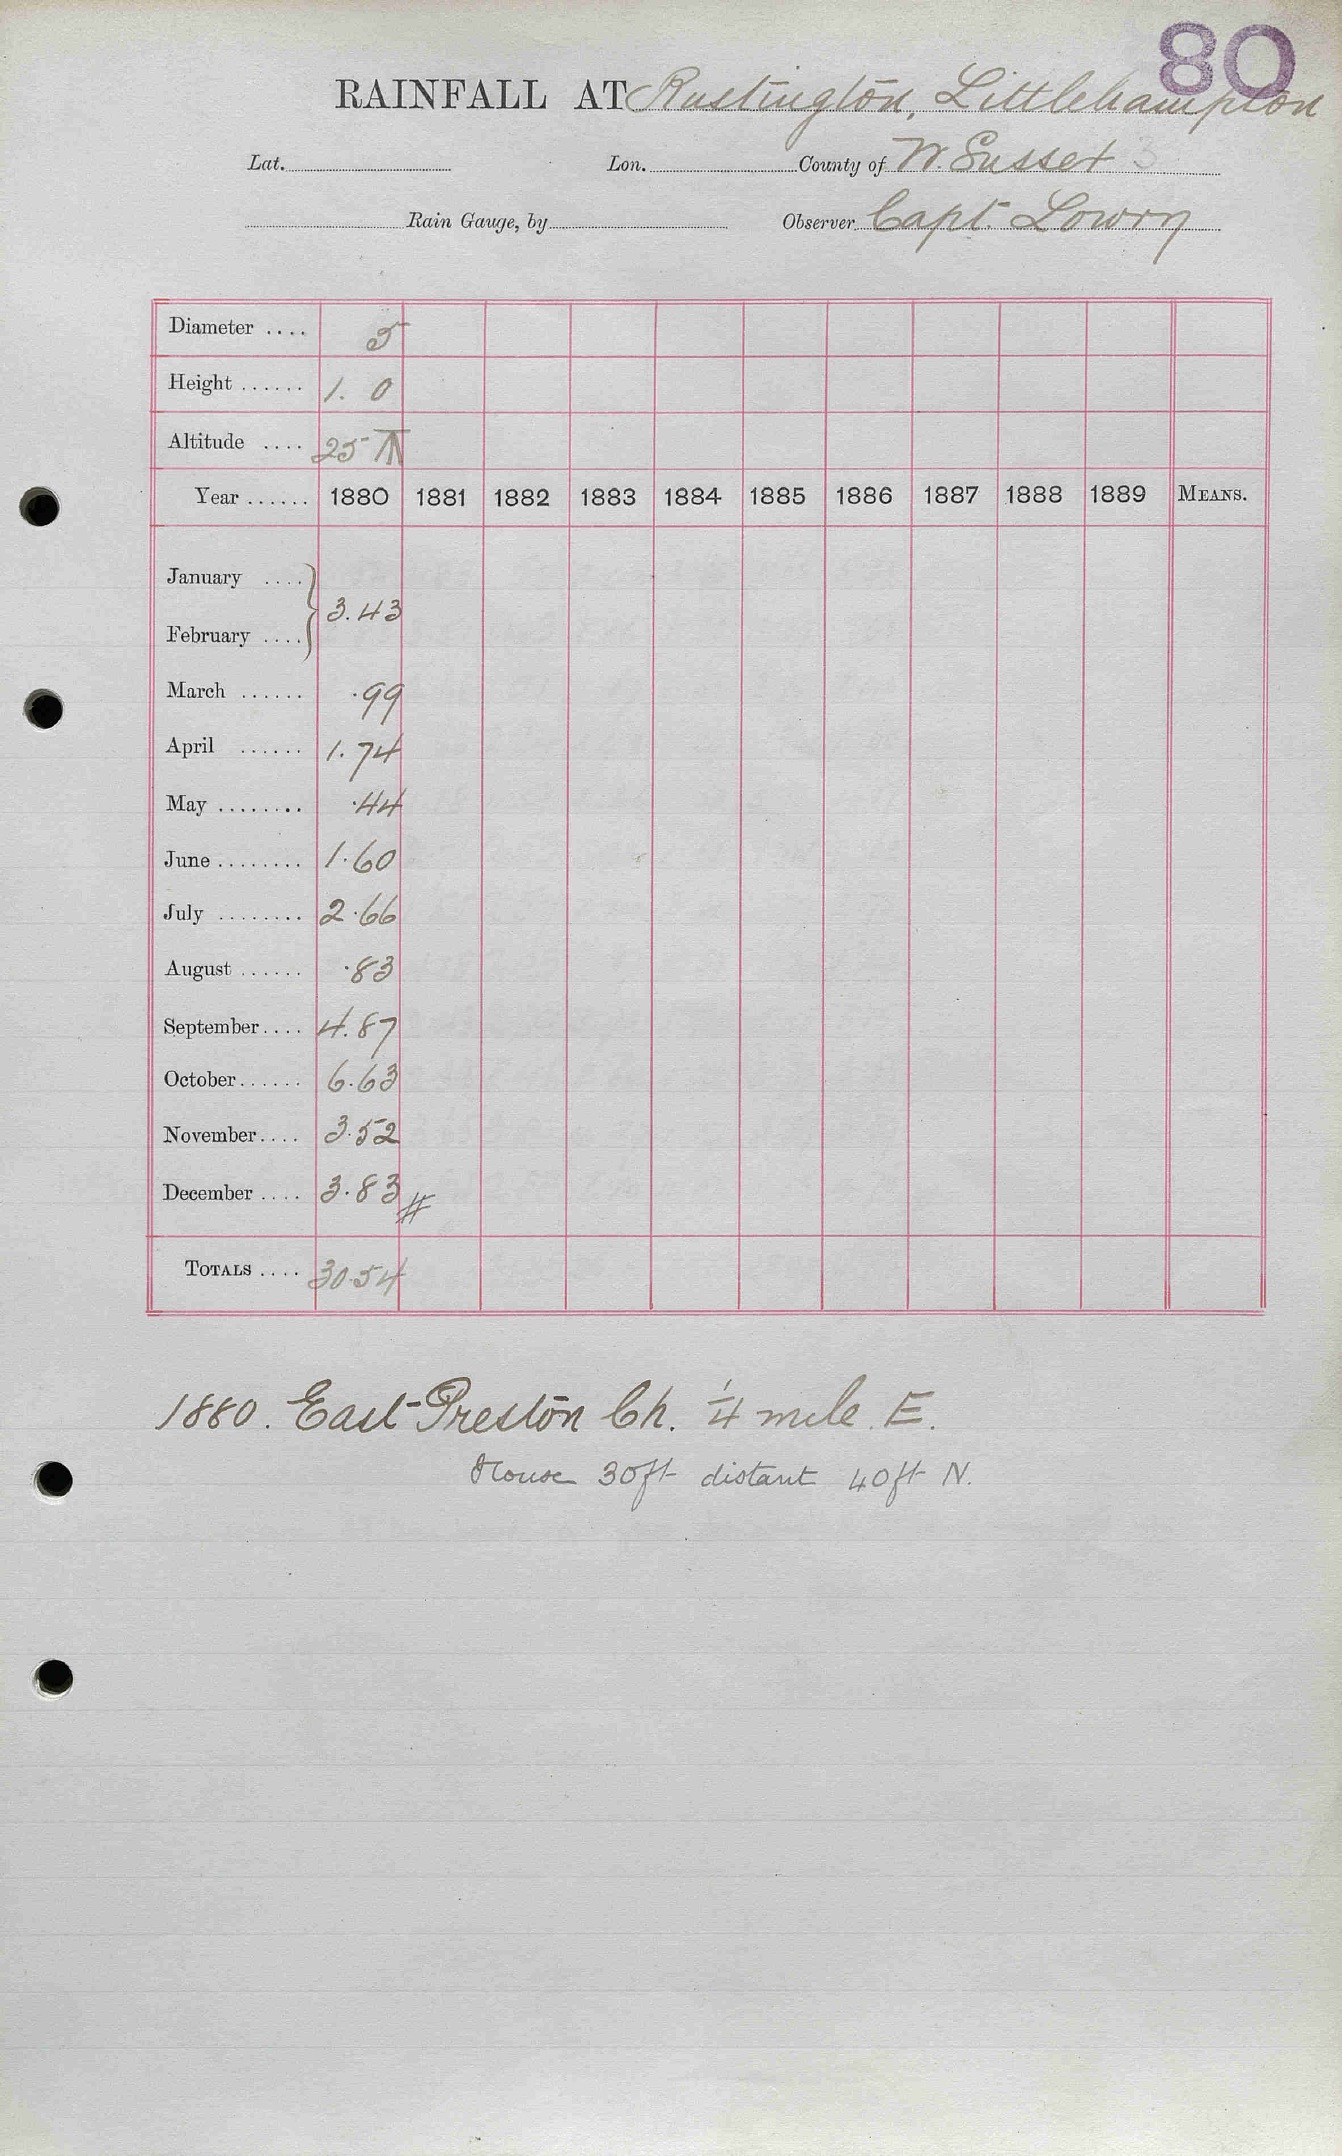 80
RAINFALL AT Rustington, Littlehampton
Lat. Lon. County of W. Sussex 3
Rain Gauge, by Observer Capt. Lowry
Diameter .... 5
Height ...... 1. 0
Altitude .... 25
Year ...... 1880 1881 1882 1883 1884 1885 1886 1887 1888 1889 MEANS.
January ....
} 3.43
February ....
March ...... .99
April ...... 1.74
May ........ .44
June ........ 1.60
July ........ 2.66
August ...... .83
September.... 4.87
October...... 6.63
November.... 3.52
December .... 3.83 #
TOTALS .... 30.54
1880. East Preston Ch. 1/4 mile E.
House 30ft distant 40ft N.